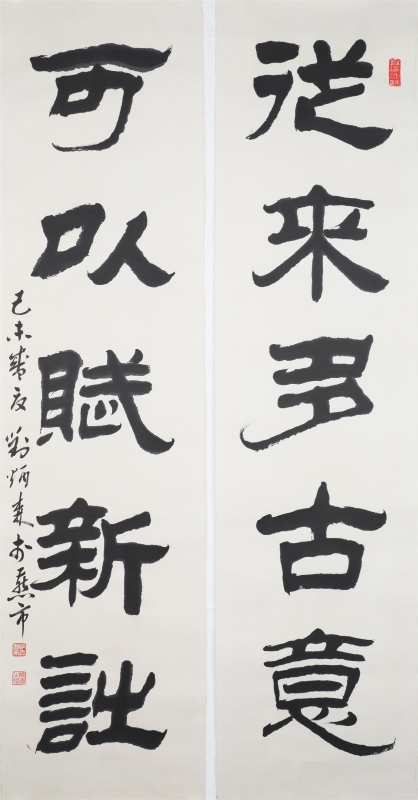 從来多古意
可以賦新詩
己未歲夏劉炳森於燕市